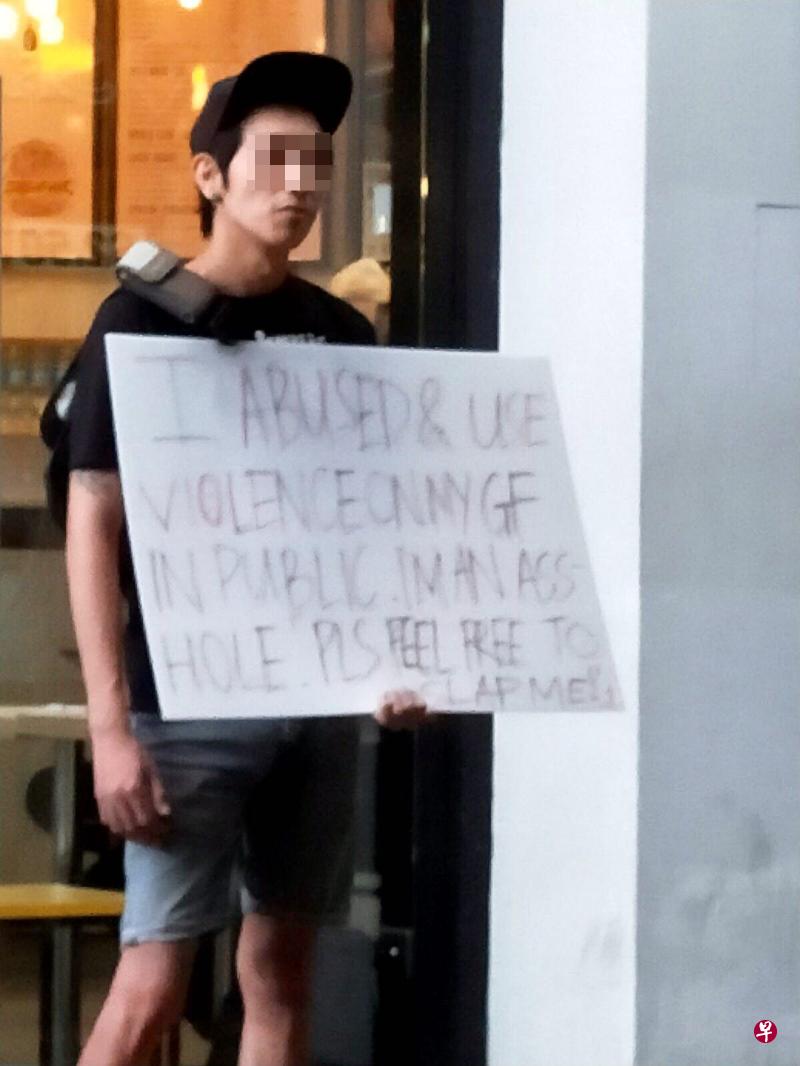 I ABUSED & USE
VIOLENCE ON MY GF
IN PUBLIC. I'M AN ASS-
HOLE. PLS FEEL FREE TO
SLAP ME!!
早